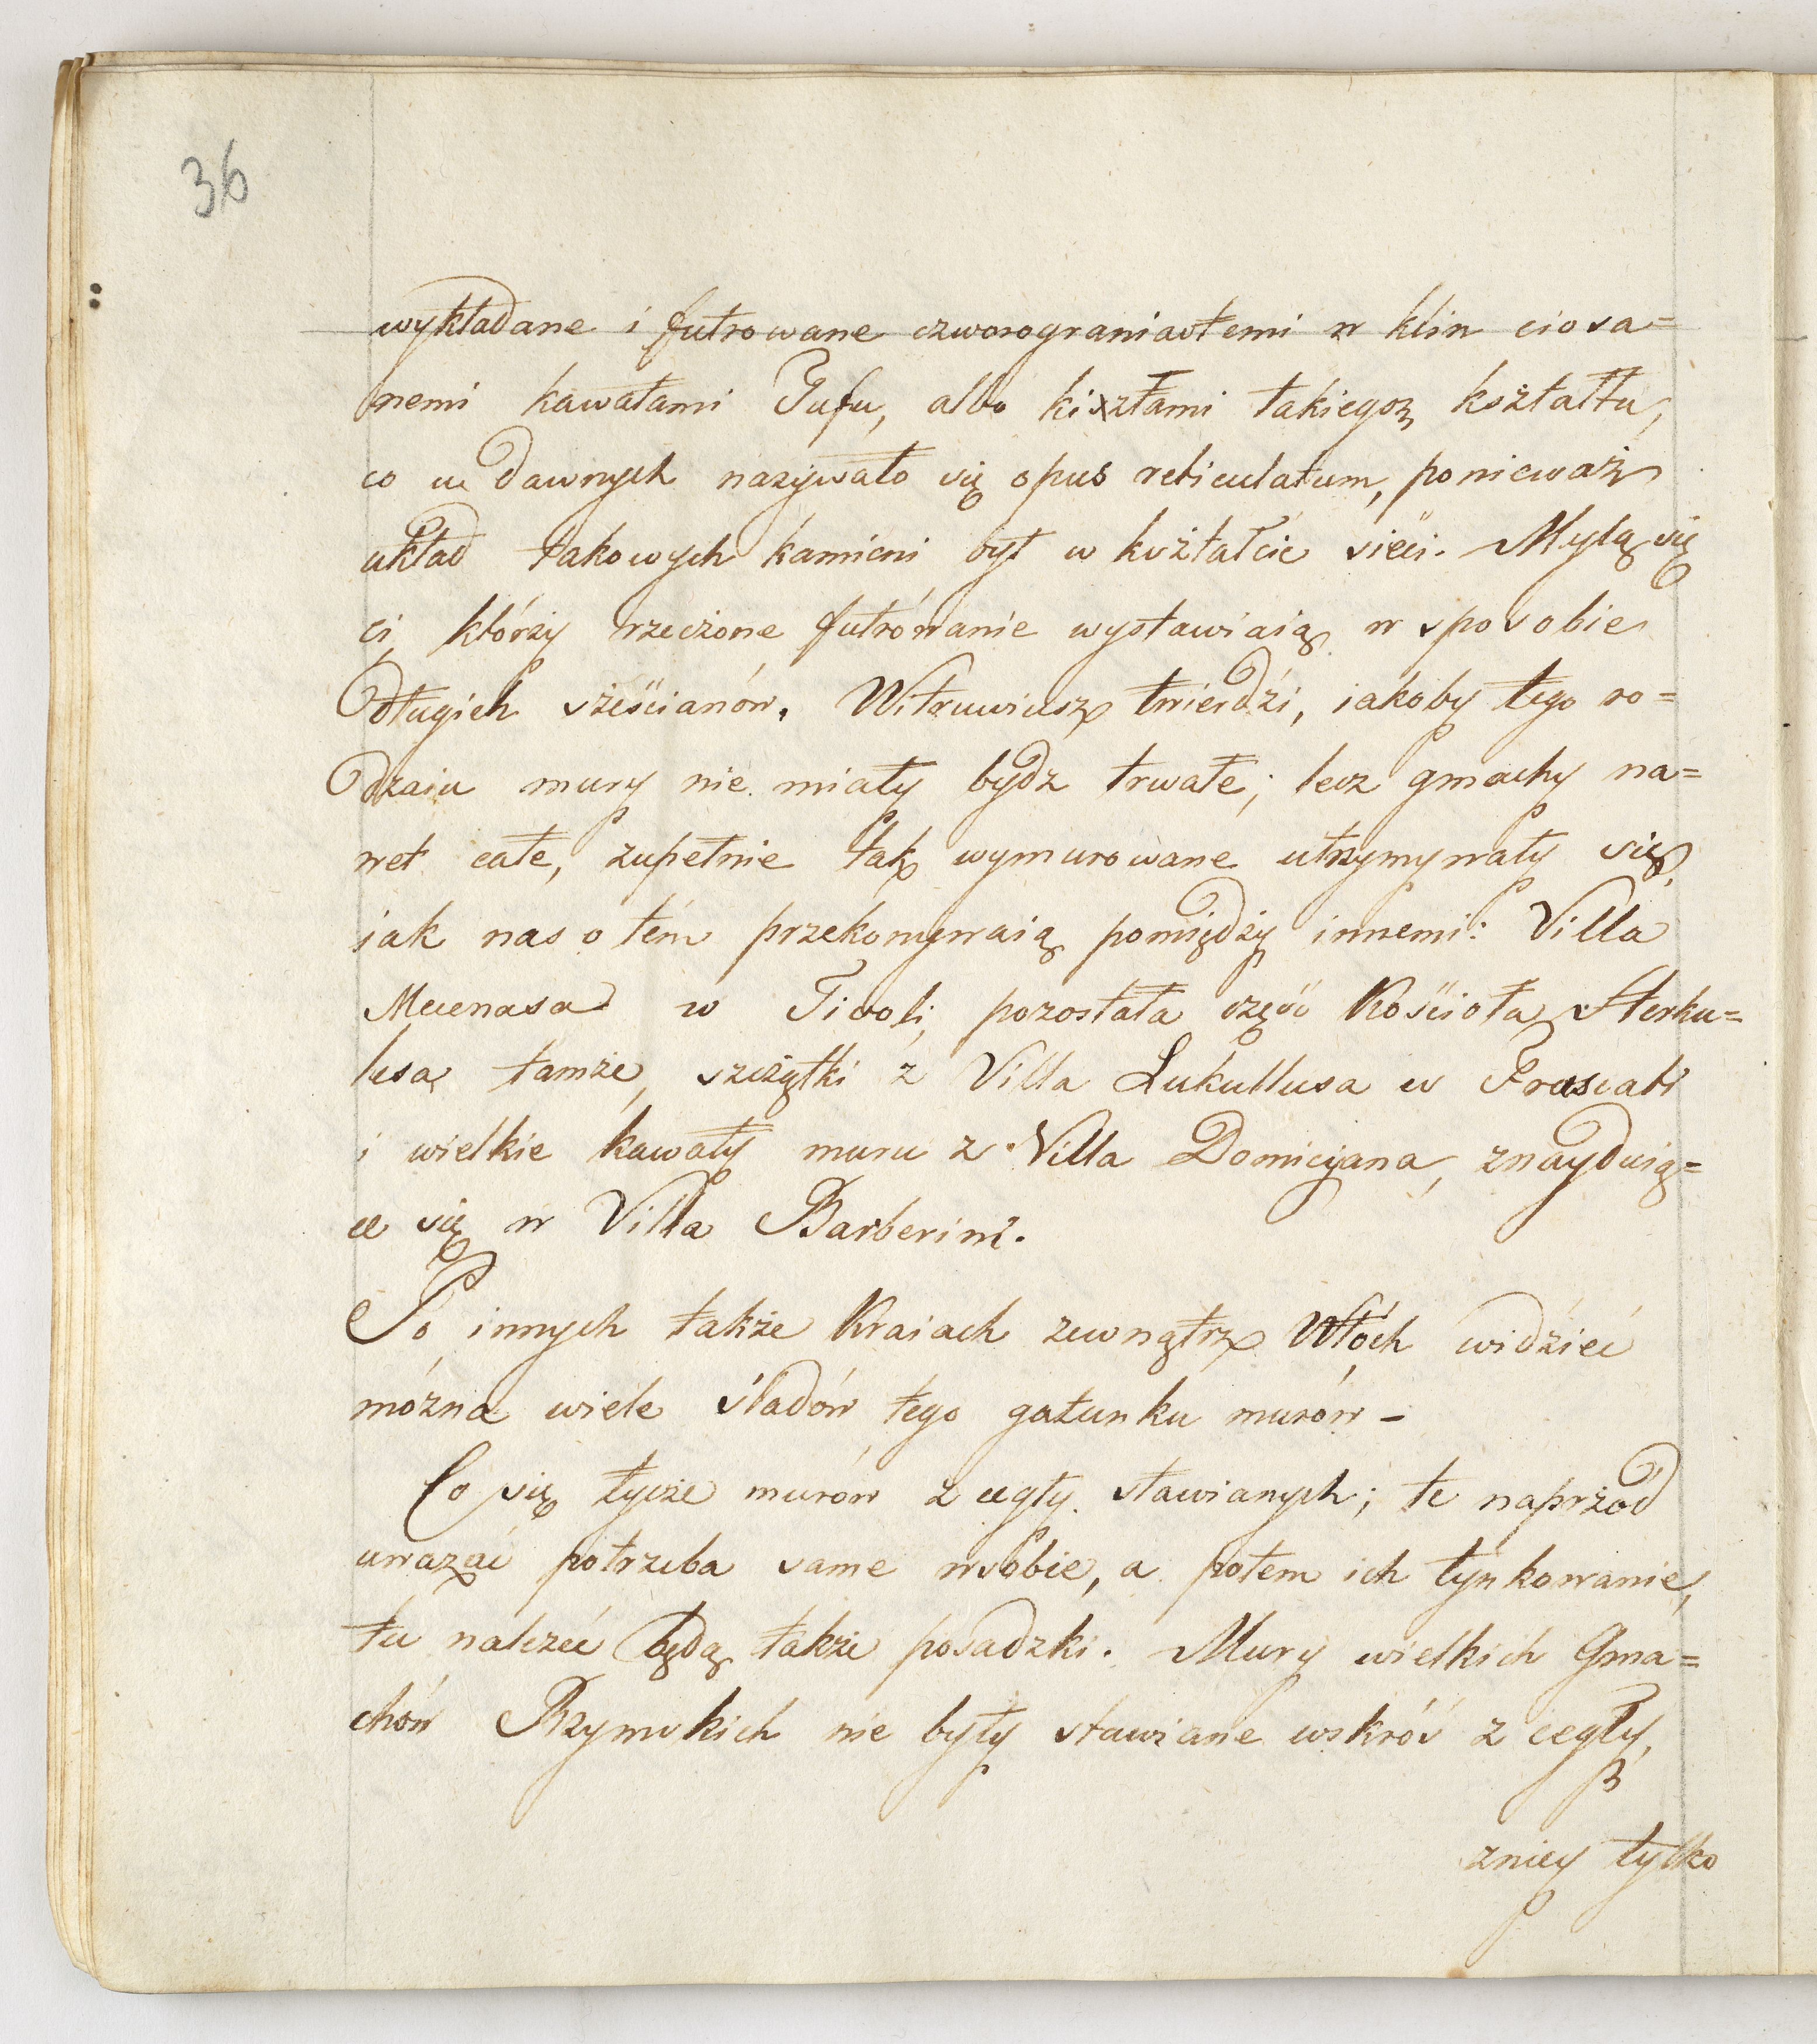 36
wykładane i futrowane czworograniastemi w klin ciosa=
nemi kawałami Tufu, albo kisztami takiegoż kształtu,
co u dawnych nazywało się opus reticulatum, ponieważ
układ takowych kamieni był w kształcie sieci. Mylą się
ci, którzy rzeczone futrowanie wystawiaią w sposobie
długich sześcianów. Witruwiusz twierdzi, iakoby tego ro=
dzaiu mury nie miały bydz trwałe; lecz gmachy na=
wet całe, zupełnie tak wymurowane utrzymywały się,
iak nas o tém przekonywaią pomiędzy innemi: Villa
Mecenasa w Tivoli, pozostała część Kościoła Herku=
lesa tamże, szczątki z Villa Lukullusa w Frascati
i wielkie kawały muru z Villa Domicyana, znayduią=
ce się w Villa Barberini.
Po innych także Kraiach zewnątrz Włoch widzieć
można wiele śladów tego gatunku murów –
Co się tycze murów z cegły stawianych; te naprzód
uważać potrzeba same wsobie, a potem ich tynkowanie,
tu należeć będą także posadzki. Mury wielkich Gma=
chów Rzymskich nie były stawiane wskróś z cegły,
zniey tylko